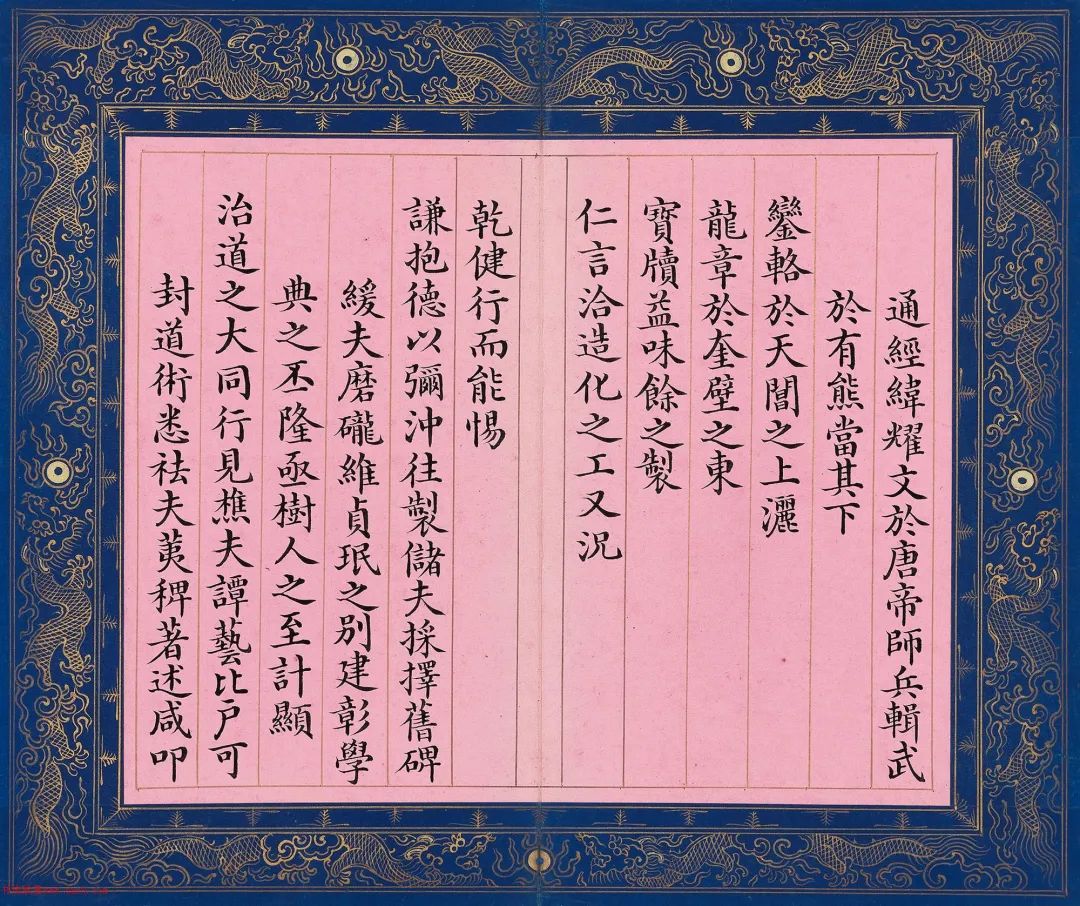 通經緯耀文於唐帝師兵輯武
於有熊當其下
鑾輅於天閶之上灑
龍章於奎壁之東
寶牘益味餘之製
仁言洽造化之工又況
乾健行而能惕
謙抱德以彌沖往製儲夫採擇舊碑
緩夫磨礲維貞珉之別建彰學
典之丕隆亟樹人之至計顯
治道之大同行見樵夫譚藝比户可
封道術悉祛夫荑稗著述咸叩